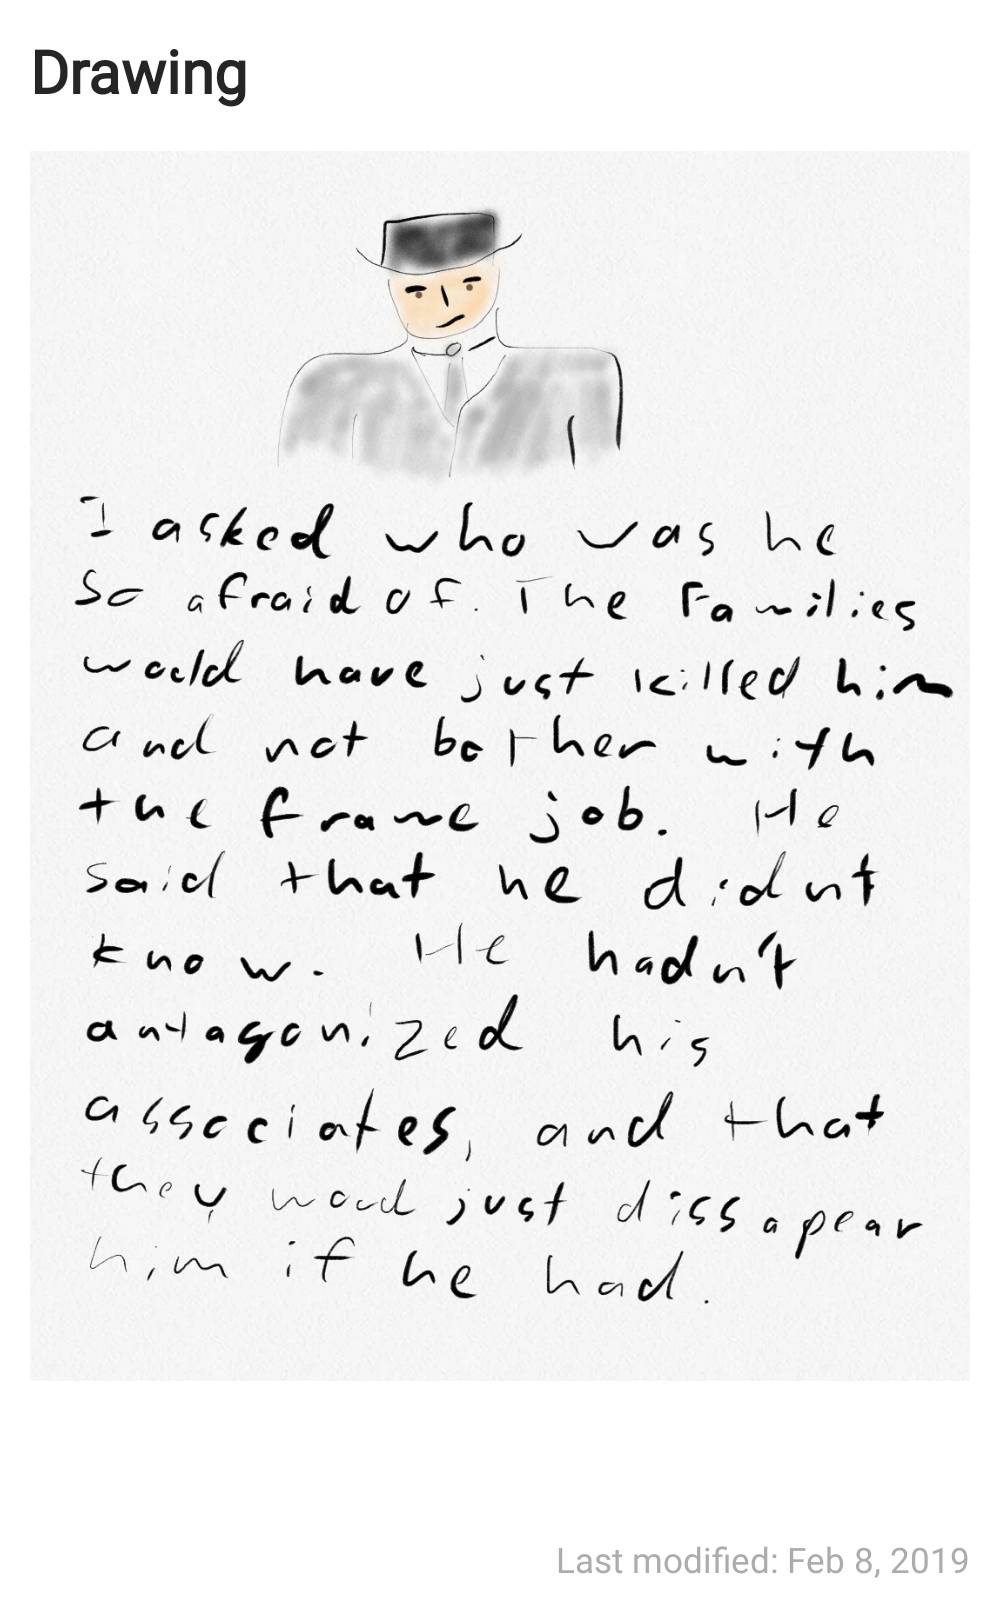 Drawing
I asked who was he
so afraid of. The Families
would have just killed him
and not bother with
the frame job. He
said that he didnt
know. He hadn't
antagonized his
associates, and that
they woud just dissapear
him if he had.
Last modified: Feb 8, 2019